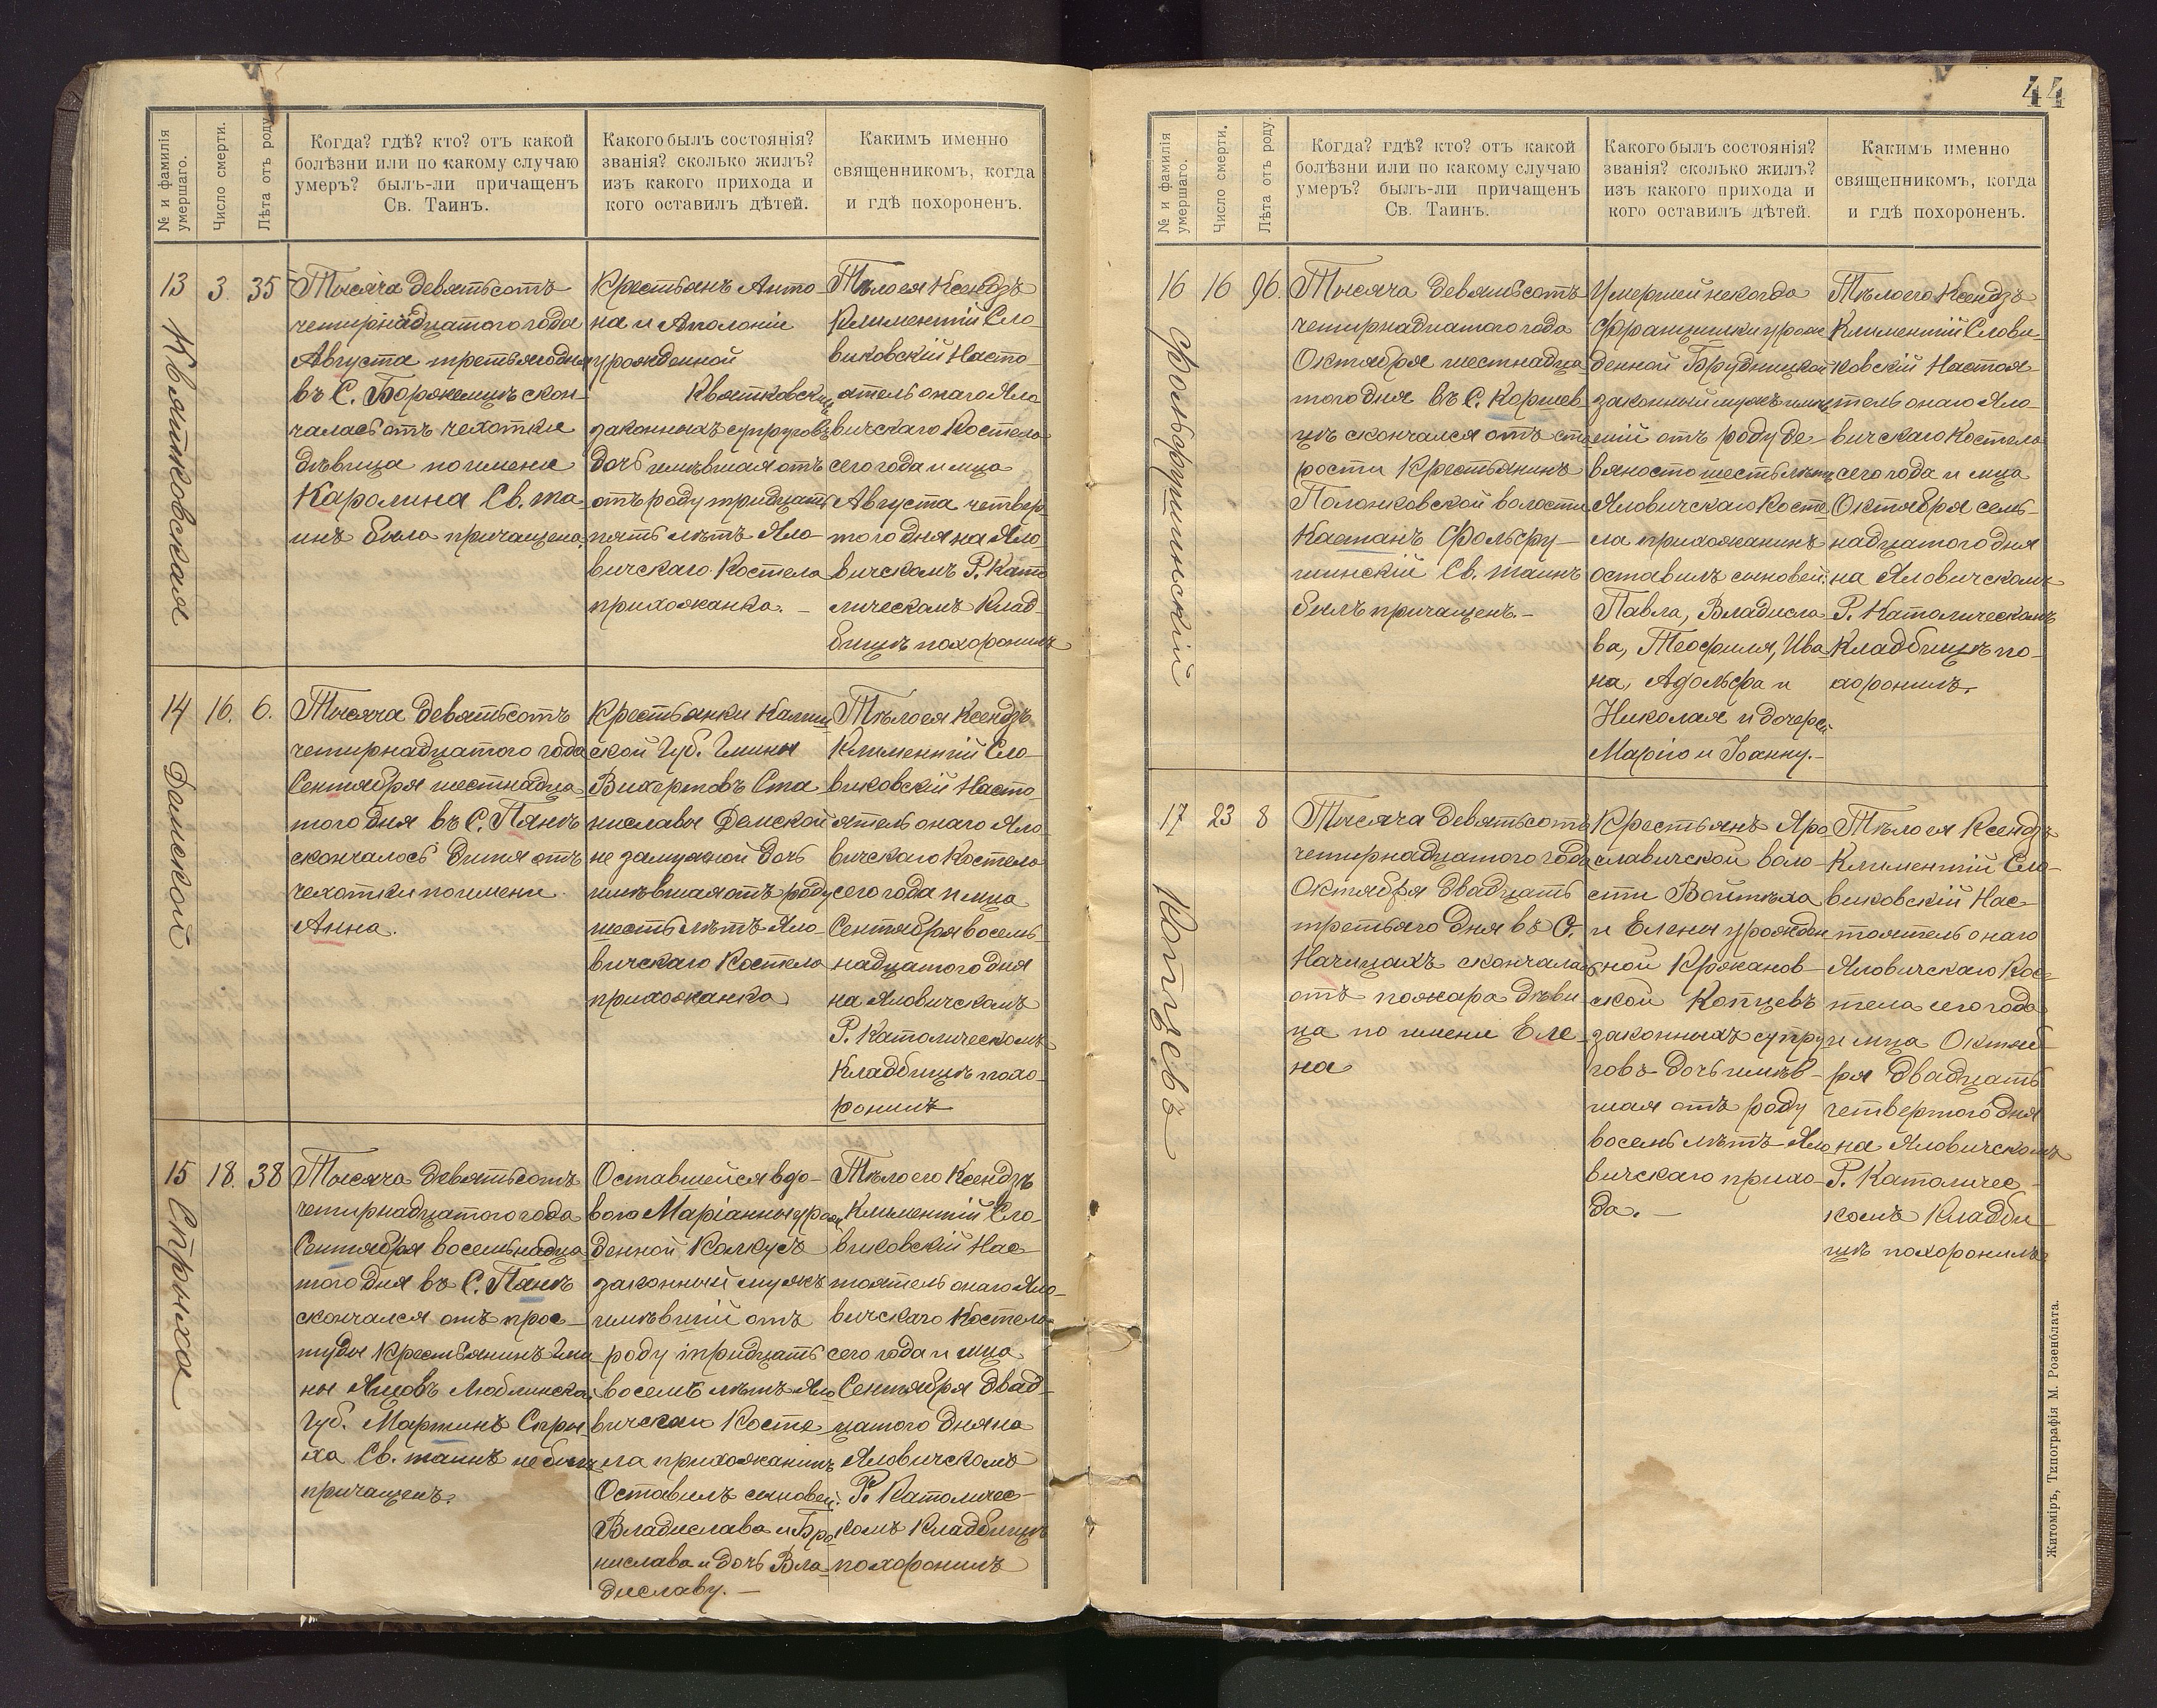 № и фамилія умершаго.
Число смерти.
Лѣта отъ роду.
Когда? гдѣ? кто? отъ какой
болѣзни или по какому случаю
умеръ? былъ-ли причащенъ
Св. Таинъ.
Какого былъ состоянія?
званія? сколько жилъ?
изъ какого прихода и
кого оставилъ дѣтей.
Какимъ именно
священникомъ, когда
и гдѣ похороненъ.
13
Квятковская
3.
35
Тысяча девятьсотъ
четырнадцатого года
Августа третьяго дня
въ С. Борежемцѣ скон-
чалась отъ чехотки
дѣвица по имени
Каролина Св. та-
инъ была причащена.
Крестьянъ Анто-
на и Аполоніи
урожденной
Квятковскихъ
законныхъ супруговъ
дочь имѣвшая отъ
отъ роду тридцать
пять лѣтъ Яло-
вичскаго Костела
прихожанка. –
Тѣло ея Ксендзъ
Климентій Сло-
виковскій Насто-
ятель онаго Яло-
вичскаго Костела
сего года и мца
Августа четвер-
того дня на Яло-
вичскомъ Р. Като-
лическомъ Клад-
бищѣ похоронилъ
14
Дамской
16.
6.
Тысяча девятьсотъ
четырнадцатого года
Сентября шестнадца-
того дня въ С. Пянѣ
скончалось дитя отъ
чехотки по имени
Анна.
Крестьянки Калиш-
ской Губ. Гмины
Вихертовъ Ста-
ниславы Демской
не замужной дочь
имѣвшая отъ роду
шесть лѣтъ Яло-
вичскаго Костела
прихожанка
Тѣло ея Ксендзъ
Климентій Сло-
виковскій Насто-
ятель онаго Яло-
вичскаго Костела
сего года и мца
Сентября восем-
надцатого дня
на Яловичскомъ
Р. Католическомъ
Кладбищѣ похо-
ронилъ
15
Стрыха
18.
38
Тысяча девятьсотъ
четырнадцатого года
Сентября восемнадца-
того дня въ С. Пянѣ
скончался отъ прос-
туды Крестьянинъ Гми-
ны Яновъ Люблинской
Губ. Мартинъ Стры-
ха Св. таинъ не былъ
причащенъ.
Оставшейся вдо-
вого Маріанны урож-
денной Калкусъ
законный мужъ
имѣвшій отъ
роду тридцать
восемь лѣтъ Яло-
вичскаго Косте-
ла прихожанинъ
Оставилъ сыновей:
Владислава и Бро-
нислава и дочь Вла-
диславу. –
Тѣло его Ксендзъ
Климентій Сло-
виковскій Нас-
тоятель онаго Яло-
вичскаго Костела
сего года и мца
Сентября двад-
цатого дня на
Яловичскомъ
Р. Католичес-
комъ Кладбищѣ
похоронилъ
44
№ и фамилія умершаго.
Число смерти.
Лѣта отъ роду.
Когда? гдѣ? кто? отъ какой
болѣзни или по какому случаю
умеръ? былъ-ли причащенъ
Св. Таинъ.
Какого былъ состоянія?
званія? сколько жилъ?
изъ какого прихода и
кого оставилъ дѣтей.
Какимъ именно
священникомъ, когда
и гдѣ похороненъ.
16
Фольфрушинскій
16
96.
Тысяча девятьсотъ
четырнадцатого года
Октября шестнадца-
того дня въ С. Коршев-
цѣ скончался отъ ста-
рости Крестьянинъ
Полонковской волости
Каетанъ Фольфру-
шинскій Св. таинъ
былъ причащенъ. –
Умершей некогда
Францишки урож-
денной Брудницкой
законный мужъ имѣв-
шій отъ роду де-
вяносто шесть лѣтъ
Яловичскаго Косте-
ла прихожанинъ
оставилъ сыновей:
Павла, Владисла-
ва, Теофиля, Ива-
на, Адольфа и
Николая и дочерей
Марію и Іоанну. –
Тѣло его Ксендзъ
Климентій Слови-
ковскій Настоя-
тель онаго Яло-
вичскаго Костела
сего года и мца
Октября сем-
надцатого дня
на Яловичскомъ
Р. Католическомъ
Кладбищѣ по-
хоронилъ.
17
Копцевъ
23
8
Тысяча девятьсотъ
четырнадцатого года
Октября двадцать
третьяго дня въ С.
Начицахъ скончалась
отъ пожара дѣви-
ца по имени Еле-
на
Крестьянъ Яро-
славичской воло-
сти Войтѣха
и Елены урожден-
ной Кржанов-
ской Копцевъ
законныхъ супру-
говъ дочь имѣв-
шая отъ роду
восемь лѣтъ Яло-
вичскаго прихо-
да. –
Тѣло ея Ксендзъ
Климентій Сло-
виковскій Нас-
тоятель онаго
Яловичскаго Кос-
тела сего года
и мца Октяб-
ря двадцать
четвертого дня
на Яловичскомъ
Р. Католичес-
комъ Кладби-
щѣ похоронилъ.
Житоміръ, Типографія М. Розенблата.